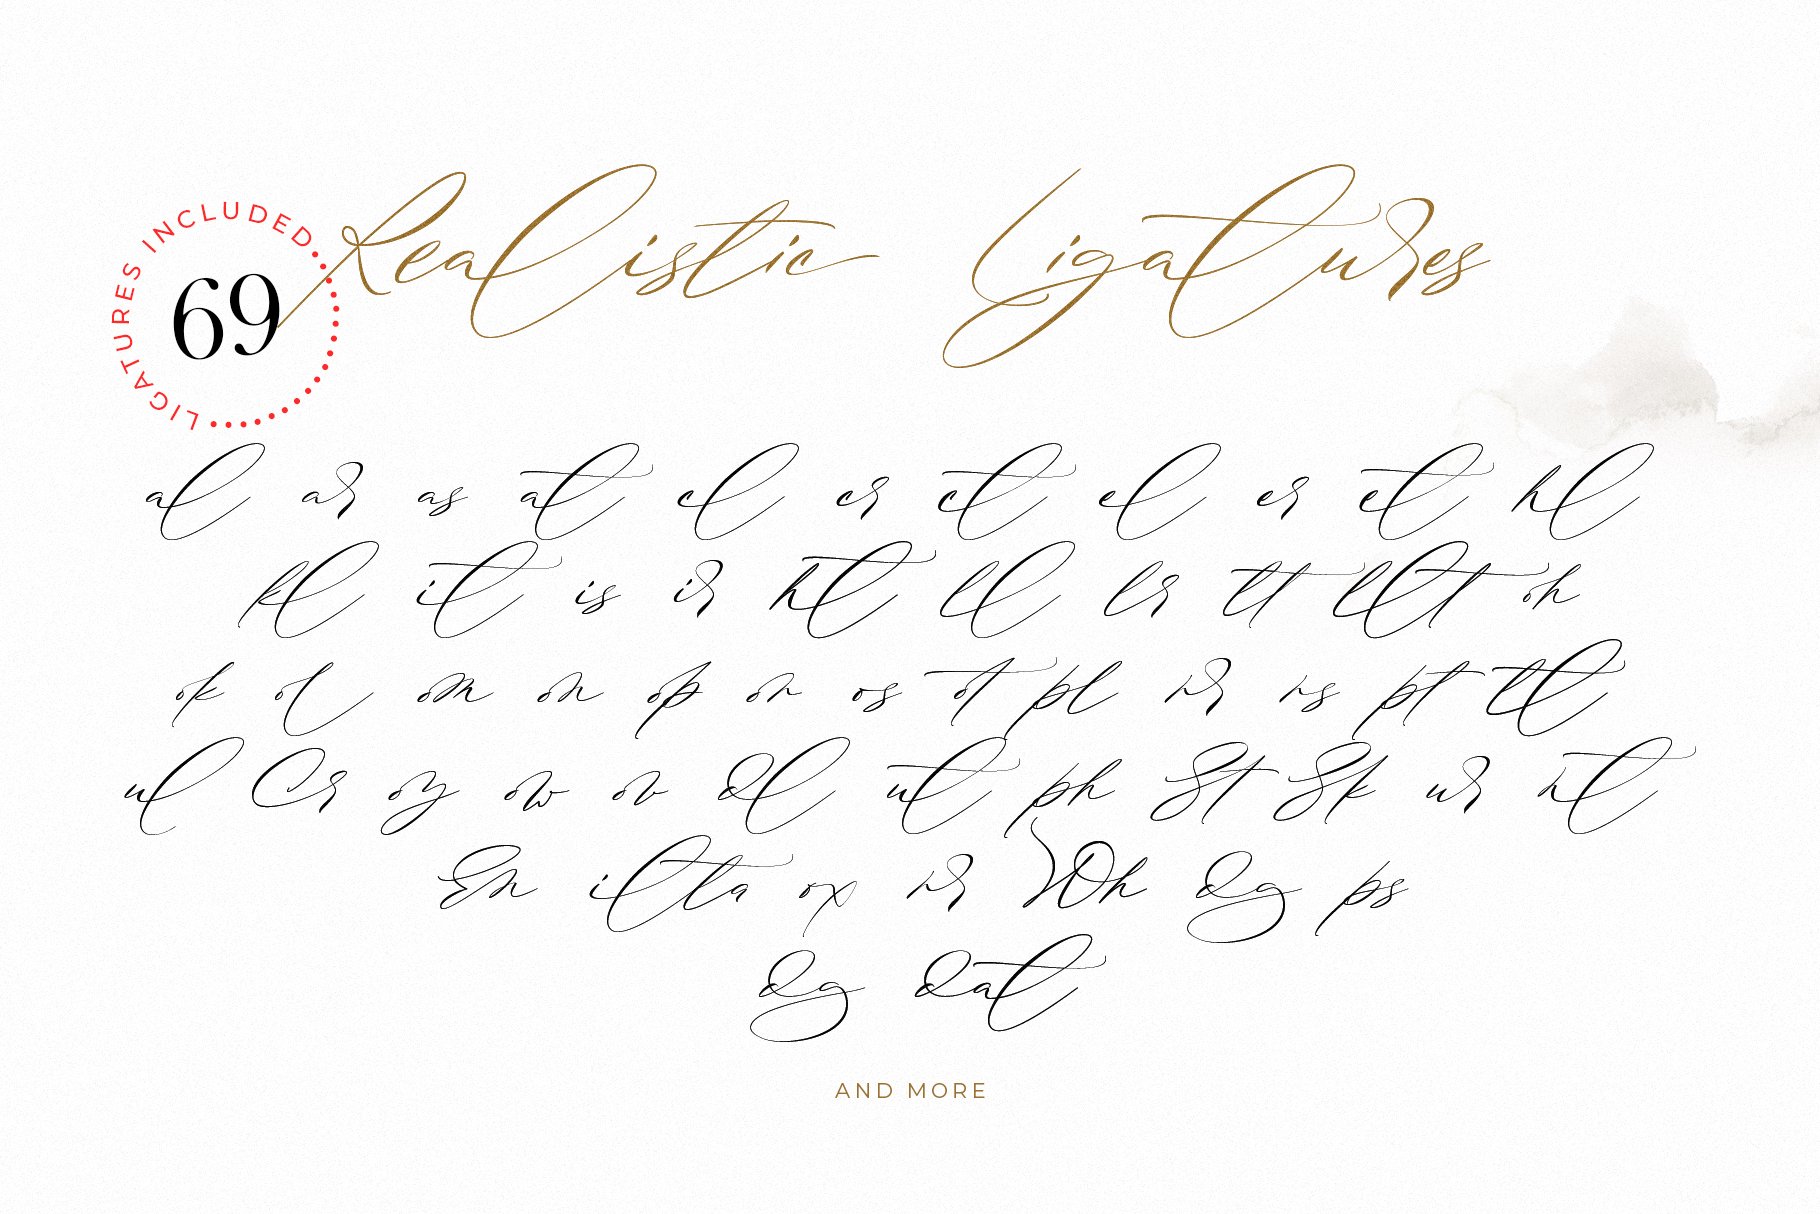 Realistic Ligatures
LIGATURES INCLUDED
69
al ar as at cl cr ct el er et hl
kl it is ir ht ll lr tt llt oh
ok ol om on op or os ot pl rr rs pt tl
ul Cr oy ow ov dl ut ph St Sk ur nt
En ilta ox rr Wh dg ps
dg dat
AND MORE